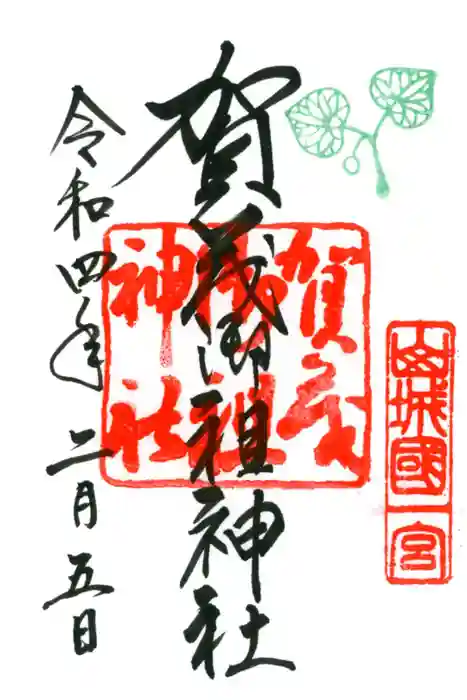 山城國一宮
賀茂御祖神社
賀茂
御祖
神社
令和四年二月五日